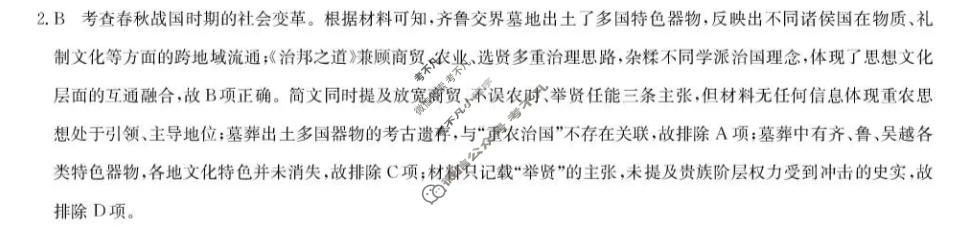 2. B　考查春秋战国时期的社会变革。根据材料可知,齐鲁交界墓地出土了多国特色器物,反映出不同诸侯国在物质、礼
制文化等方面的跨地域流通;《治邦之道》兼顾商贸、农业、选贤多重治理思路,杂糅不同学派治国理念,体现了思想文化
层面的互通融合,故B项正确。简文同时提及放宽商贸、不误农时、举贤任能三条主张,但材料无任何信息体现重农思
想处于引领、主导地位;墓葬出土多国器物的考古遗存,与“重农治国”不存在关联,故排除A项;墓葬中有齐、鲁、吴越各
类特色器物,各地文化特色并未消失,故排除C项;材料只记载“举贤”的主张,未提及贵族阶层权力受到冲击的史实,故
排除D项。